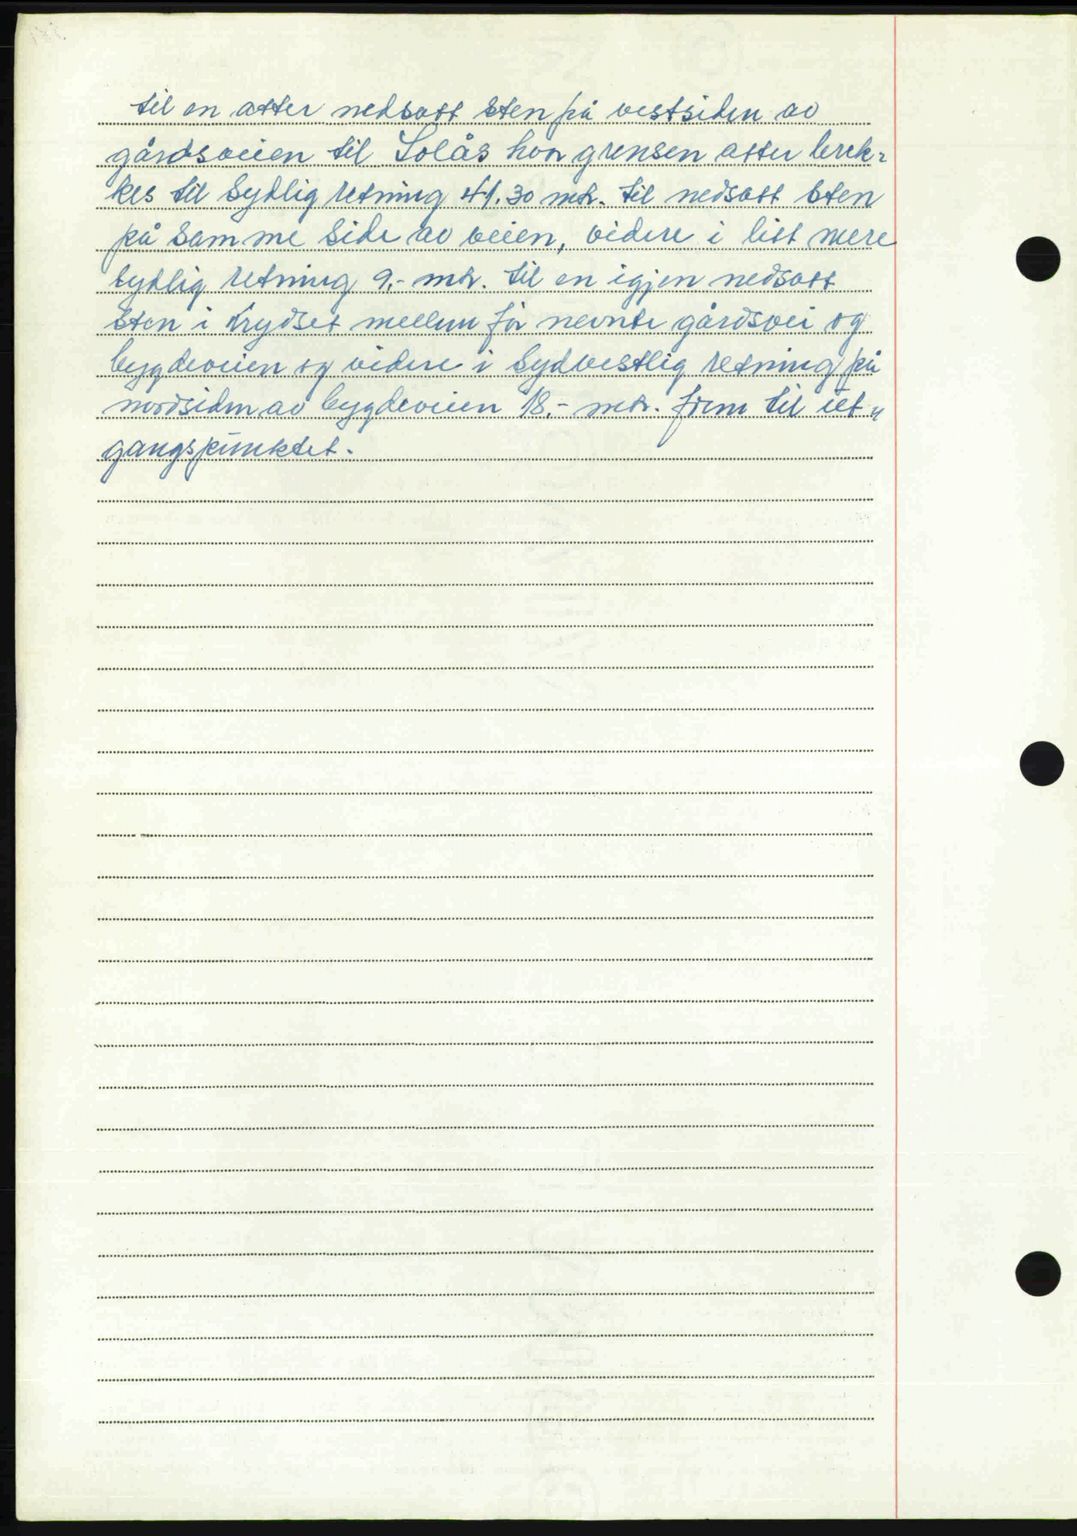 til en atter nedsatt sten på vestsiden av
gårdsveien til Solås hvor grensen atter brek=
kes til sydlig retning 41.30 mtr. til nedsatt sten
på samme side av veien, videre i litt mere
sydlig retning 9,- mtr. til en igjen nedsatt
sten i krydset mellem før nevnte gårdsvei og
bygdeveien og videre i sydvestlig retning på
nordsiden av bygdeveien 18,- mtr. frem til ut"
gangspunktet.